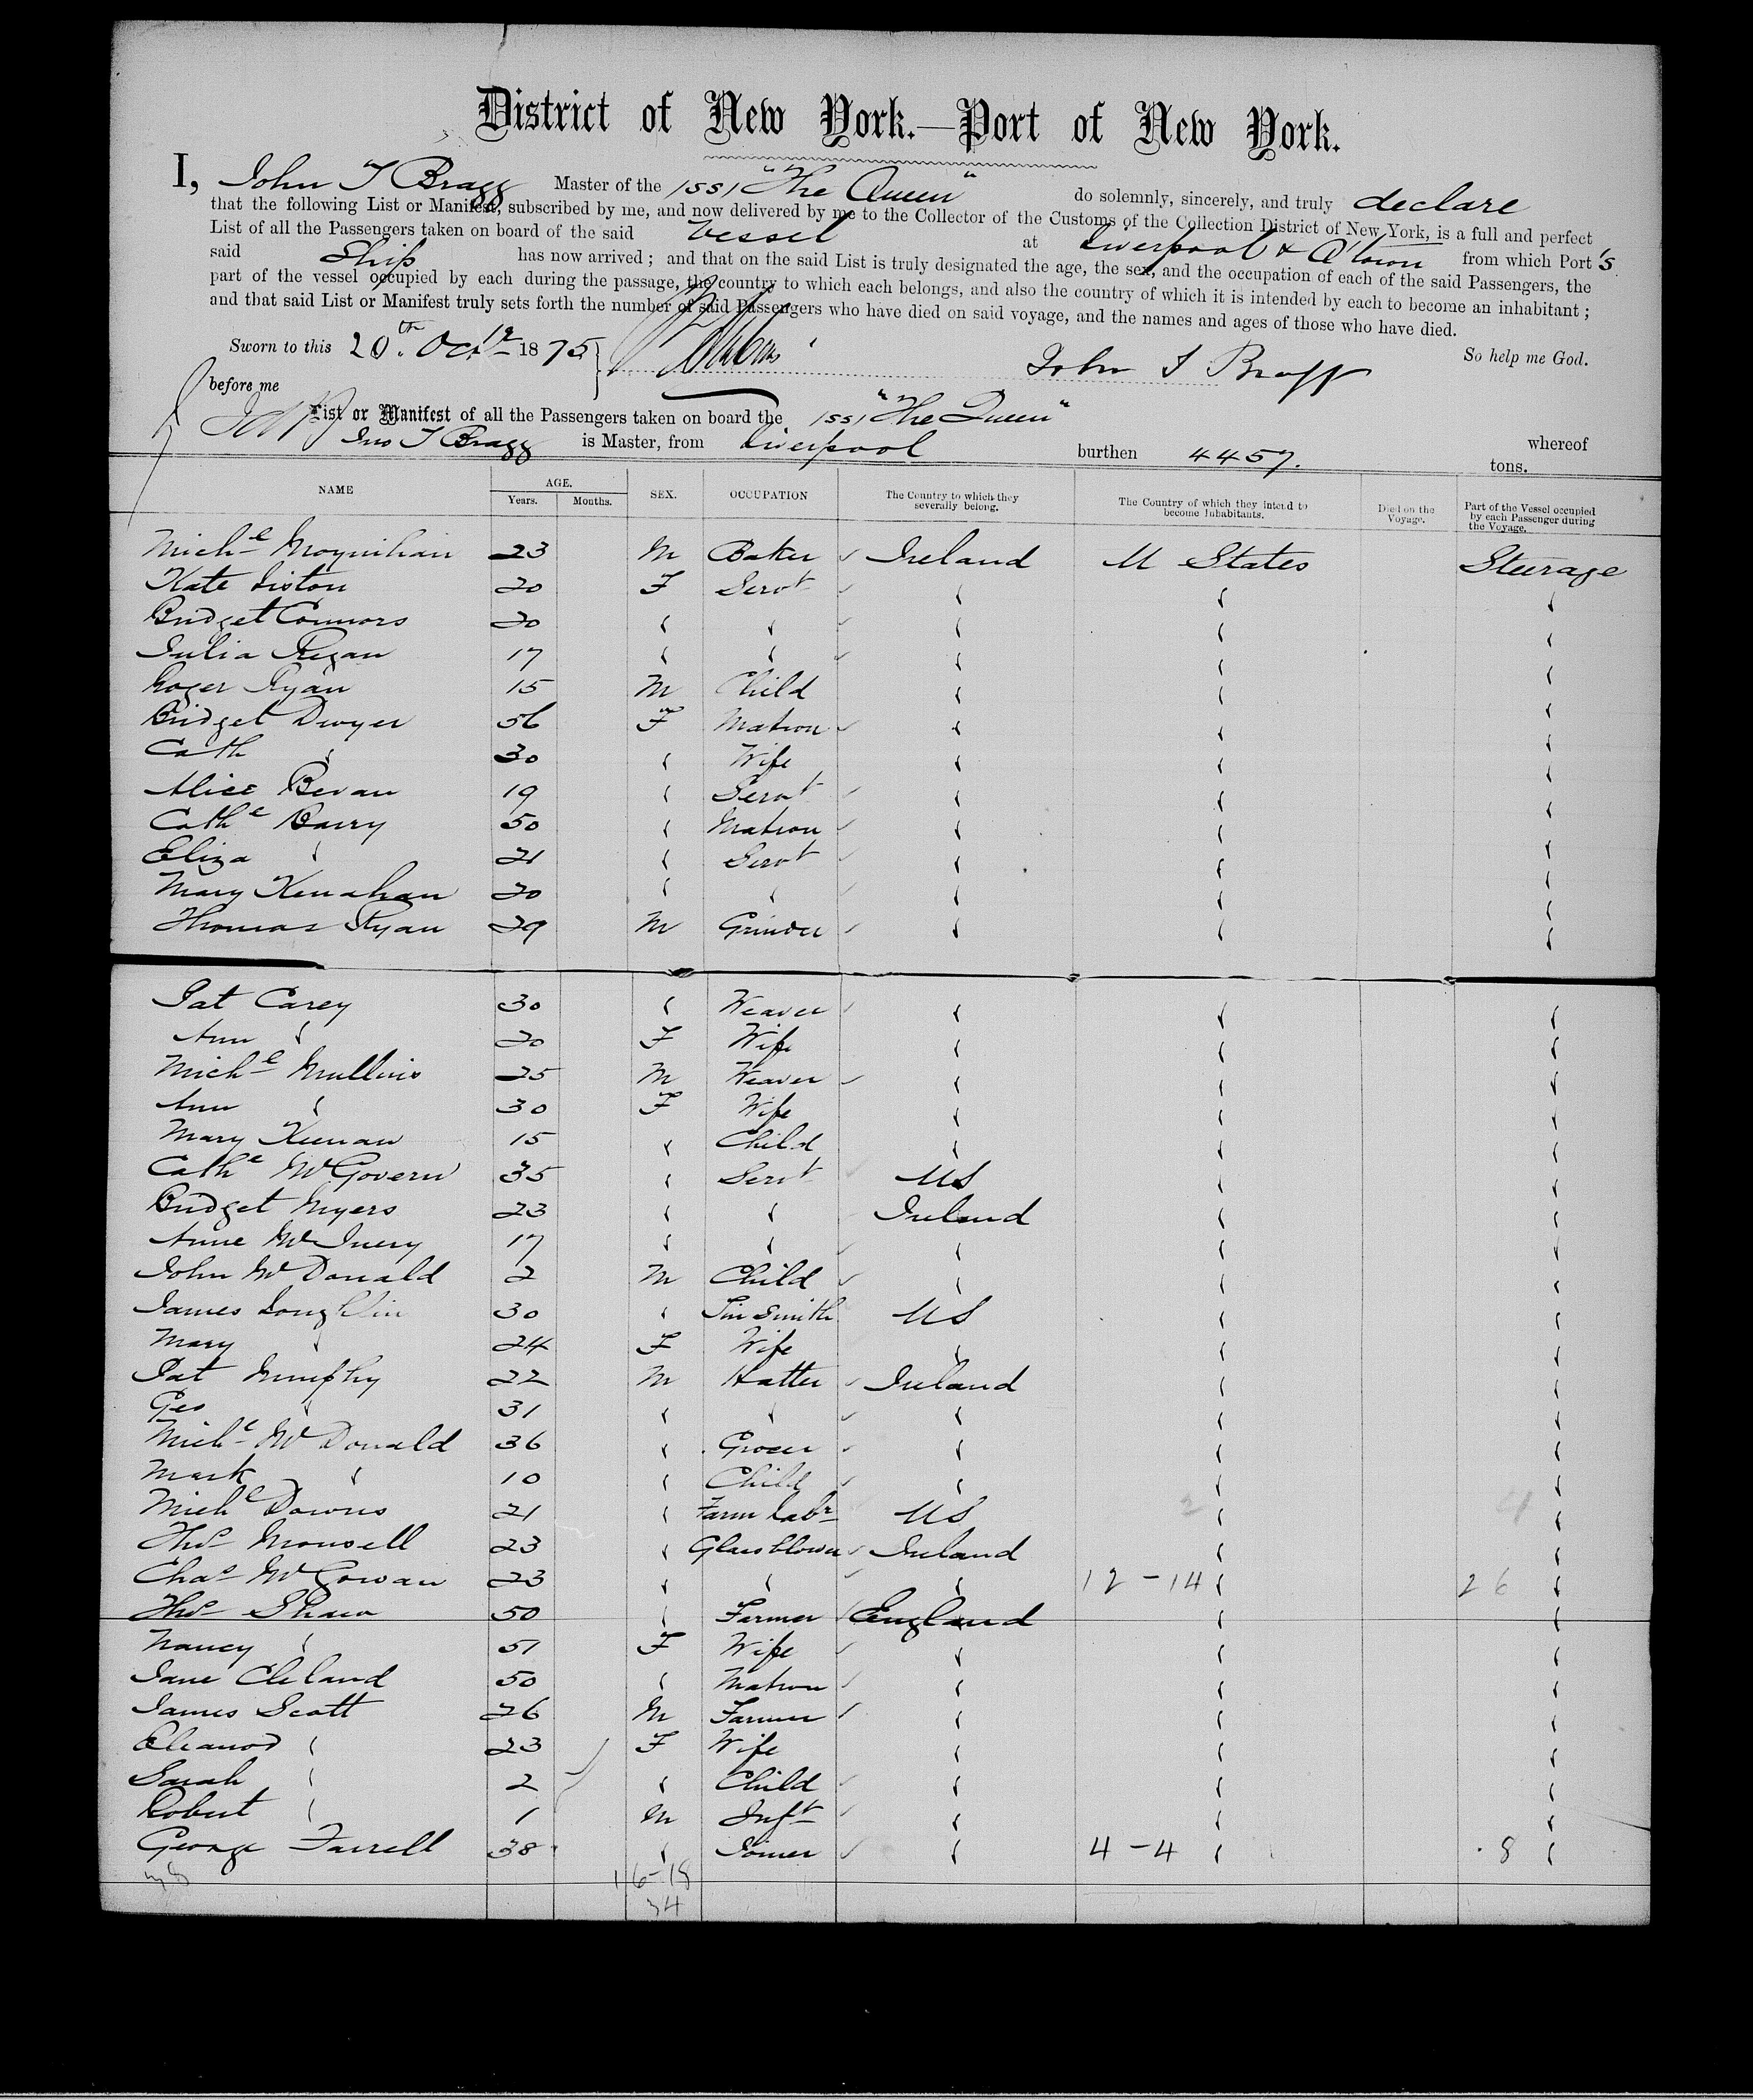 District of New York.—Port of New York.
I, John T Bragg Master of the 1SS1 "The Queen" do solemnly, sincerely, and truly declare
that the following List or Manifest, subscribed by me, and now delivered by me to the Collector of the Customs of the Collection District of New York, is a full and perfect
List of all the Passengers taken on board of the said Vessel at Liverpool & Q'town from which Port's
said Ship has now arrived; and that on the said List is truly designated the age, the sex, and the occupation of each of the said Passengers, the
part of the vessel occupied by each during the passage, the country to which each belongs, and also the country of which it is intended by each to become an inhabitant;
and that said List or Manifest truly sets forth the number of said Passengers who have died on said voyage, and the names and ages of those who have died.
Sworn to this 20th Oct 1875 So help me God.
before me John T Bragg
List or Manifest of all the Passengers taken on board the 1SS1 "The Queen" whereof
Jno T Bragg is Master, from Liverpool burthen 4457. tons.
NAME AGE. Years. Months. SEX. OCCUPATION The Country to which they severally belong. The Country of which they intend to become Inhabitants. Died on the Voyage. Part of the Vessel occupied by each Passenger during the Voyage.
Michl Moynihan 23 M Baker Ireland U States Steerage
Kate Liston 20 F Servt " " "
Bridget Connors 20 " " " " "
Julia Regan 17 " " " " "
Roger Ryan 15 M Child " " "
Bridget Dwyer 56 F Matron " " "
Cath " 30 " Wife " " "
Alice Bevan 19 " Servt " " "
Cathe Barry 50 " Matron " " "
Eliza " 21 " Servt " " "
Mary Kenahan 20 " " " " "
Thomas Ryan 29 M Grinder " " "
Pat Carey 30 " Weaver " " "
Ann " 20 F Wife " " "
Michl Mullins 25 M Weaver " " "
Ann " 30 F Wife " " "
Mary Keenan 15 " Child " " "
Cathe McGovern 35 " Servt US " "
Bridget Myers 23 " " Ireland " "
Anne McInery 17 " " " " "
John McDonald 2 M Child " " "
James Loughlin 30 " Tin Smith US " "
Mary " 24 F Wife " " "
Pat Murphy 22 M Hatter Ireland " "
Geo " 31 " " " " "
Michl McDonald 36 " Grocer " " "
Mark " 10 " Child " " "
Michl Downs 21 " Farm Labr US " "
Thos Monsell 23 " Glassblower Ireland " "
Chas McGowan 23 " " " 12-14 " 26 "
Thos Shaw 50 " Farmer England " "
Nancy " 51 F Wife " " "
Jane Cleland 50 " Matron " " "
James Scott 26 M Farmer " " "
Eleanor " 23 F Wife " " "
Sarah " 2 " Child " " "
Robert " 1 M Inft " " "
George Farrell 38 " Joiner " 4-4 " 8 "
38 16-18
34